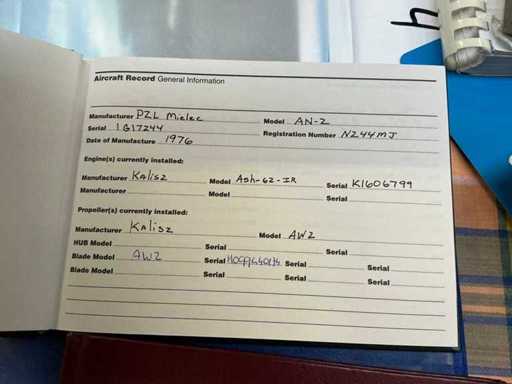 h
Aircraft Record General Information
Manufacturer PZL Mielec Model AN-2
Serial 1G17244 Registration Number N244MJ
Date of Manufacture 1976
Engine(s) currently installed:
Manufacturer KAlisz Model Ash-62-IR Serial K1606799
Manufacturer Model Serial
Propeller(s) currently installed:
Manufacturer Kalisz Model AW2
HUB Model Serial
Blade Model AW2 Serial Serial Serial
Blade Model Serial Serial Serial